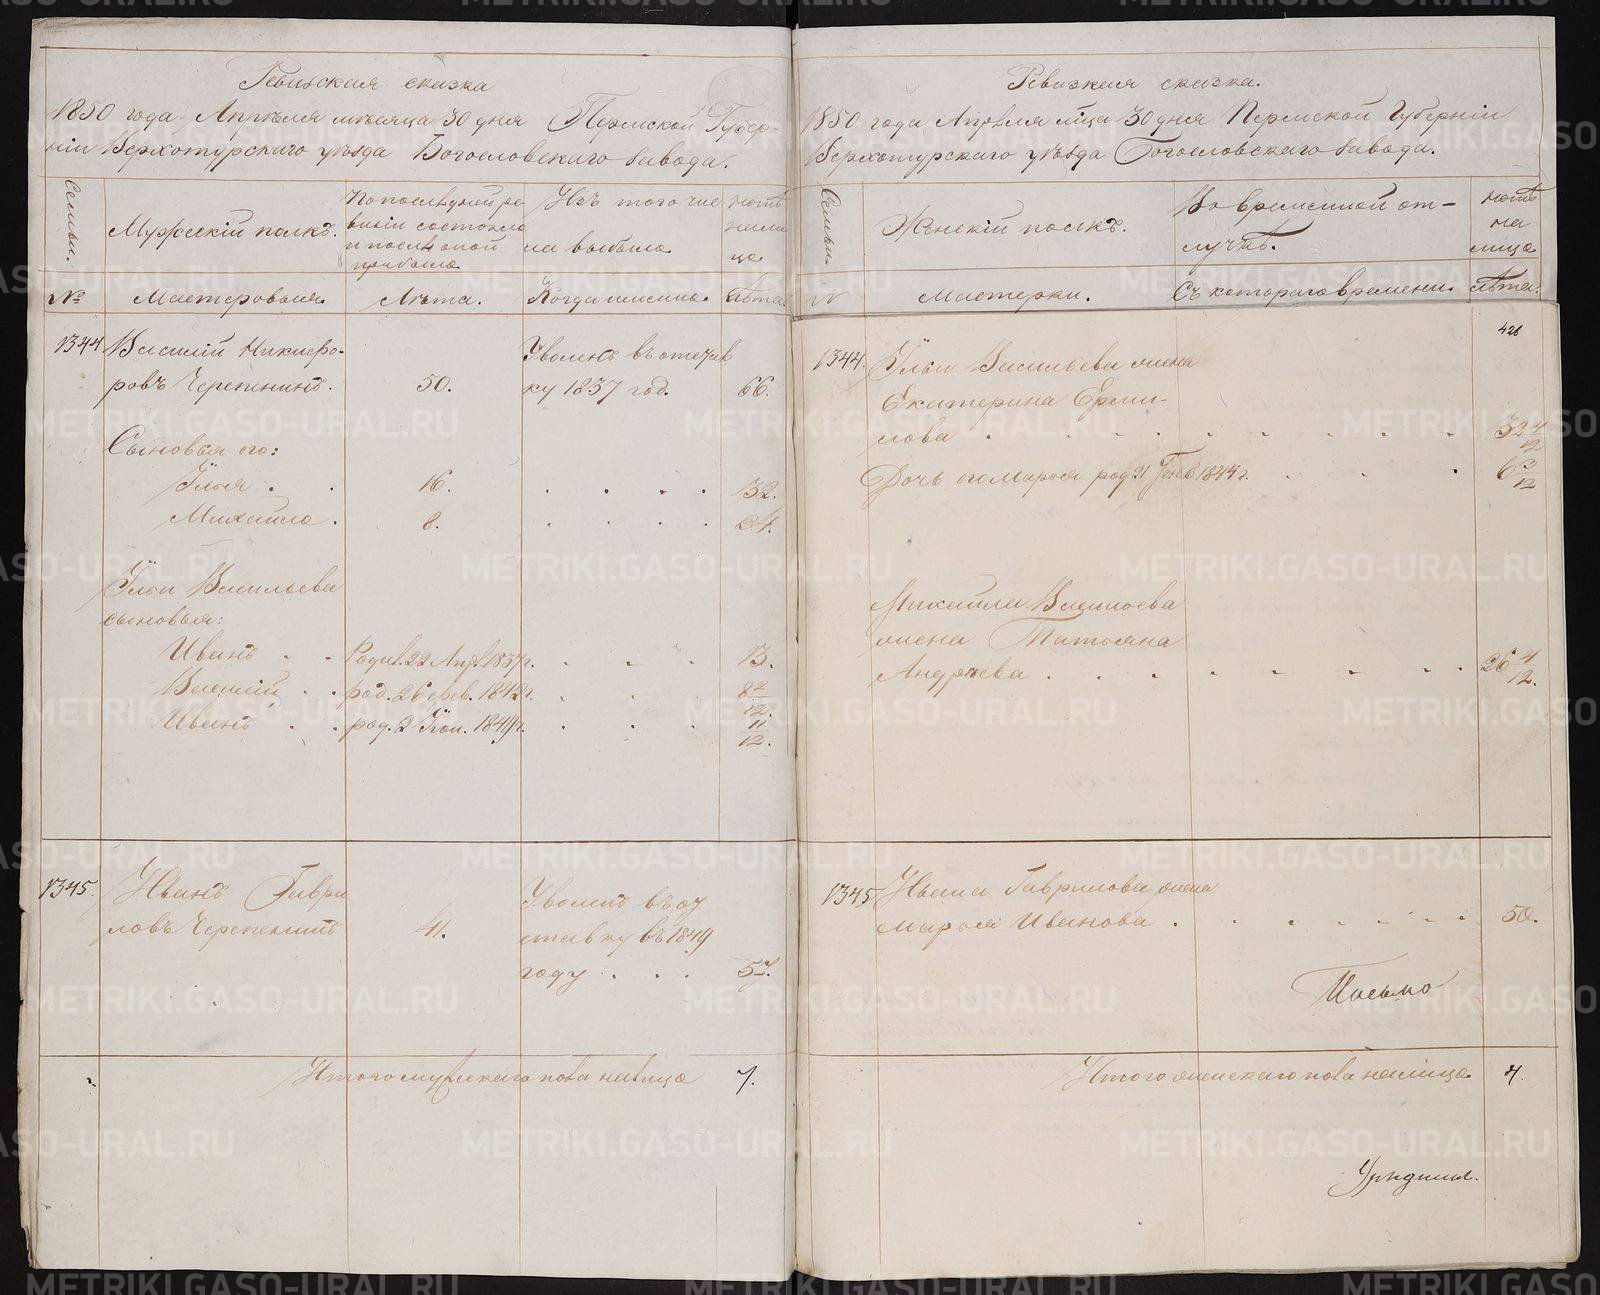 Ревизская сказка
1850 года Апрѣля мѣсяца 30 дня Пермской Губер-
ніи Верхотурскаго уѣзда Богословскаго завода.
Семьи.
Мужескій полъ.
По послѣдней ре
визіи состояло
и послѣ оной
прибыло
Изъ того чис
ла выбыло
Нынѣ
на ли
це
№
Мастеровыя
Лѣта.
Когда именно.
Лѣта.
1344
Василій Никифо-
ровъ Черепенинъ.
50.
Уволенъ въ отстав
ку 1837 год.
66.
Сыновья его:
Илья . . 16. . . . . 32.
Михайло . 8. . . . . 24.
Ильи Васильева
сыновья:
Иванъ . . Родил. 22 Апр. 1837 г. . . . 13.
Василій . . род. 26 фев. 1842 г. . . . 8 2/12.
Иванъ . . род. 2 Іюн. 1849 г. . . . 11/12.
1345.
Иванъ Гаври
ловъ Черепенинъ
41.
Уволенъ въ от
ставку въ 1849
году . . . 57.
Итого мужескаго пола налице 7.
Ревизкая сказка.
1850 года Апрѣля мѣца 30 дня Пермской Губерніи
Верхотурскаго уѣзда Богословскаго завода.
Семьи.
Женскій полъ.
Во временной от-
лучкѣ.
Нынѣ
на
лице
№
Мастерки.
Съ котораго времени.
Лѣта.
428
1344.
Ильи Васильева жена
Екатерина Ерми-
лова . . . . . . . . 32 4/12
Дочь его Марья род. 21 Генв. 1844 г. . . . 6 3/12
Михайла Васильева
жена Татьяна
Андреева . . . . . . . . 26 4/12.
1345
Ивана Гаврилова жена
Марья Иванова . . . . . . . 50.
Письмо
Итого женскаго пола налице. 4.
METRIKI.GASO-URAL.RU